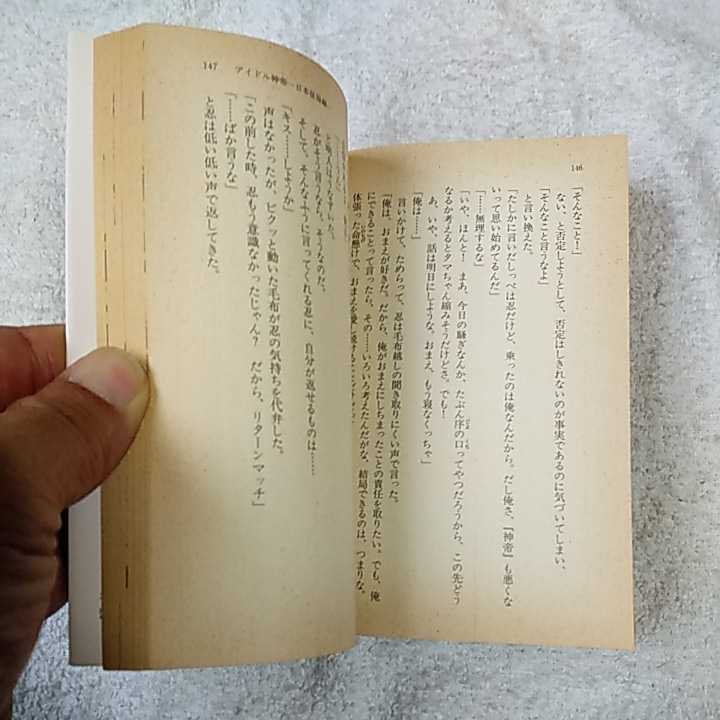 146
「そんなこと！」
ない、と否定しようとして、否定はしきれないのが事実であるのに気づいてしまい、
「そんなこと言うなよ」
と言い換えた。
「たしかに言いだしっぺは忍だけど、乗ったのは俺なんだから。だし俺さ、『神帝』も悪くな
いって思い始めてるんだ」
「……無理するな」
「いや、ほんと！　まあ、今日の騒ぎなんか、たぶん序の口ってやつだろうから、この先どう
なるか考えるとタマちゃん縮みそうだけどさ。でも！
あ、いや、話は明日にしような。おまえ、もう寝なくっちゃ」
「俺は……」
言いかけて、ためらって、忍は毛布越しの聞き取りにくい声で言った。
「俺は、おまえが好きだ。だから、俺がおまえにしちまったことの責任を取りたい。でも、俺
にできることって言ったら、その……いろいろ考えたんだがな、結局できるのは、つまりな、
体張った命懸けで、おまえを愛し続ける
147
アイドル神帝
と
忍がそう言うなら、そうなのだ。
そして、そんなふうに言ってくれる忍に、自分が返せるものは……
「キス……しようか」
声はなかったが、ビクッと動いた毛布が忍の気持ちを代弁した。
「この前した時、忍もう意識なかったじゃん？　だから、リターンマッチ」
「……ばか言うな」
と忍は低い低い声で返してきた。